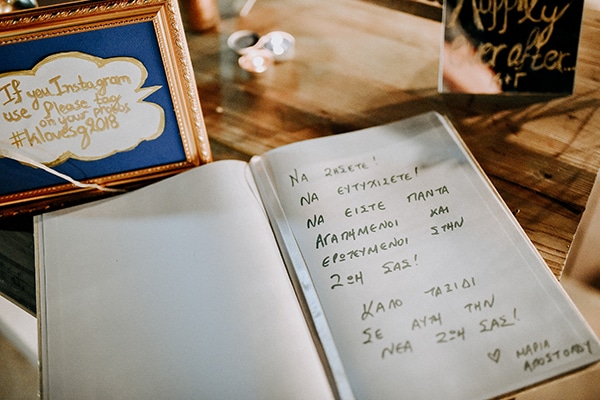 If you Instagram
use Please tag
on your photos
#klovesg2018
Happily
ever after...
ΝΑ ΖΗΣΕΤΕ!
ΝΑ ΕΥΤΥΧΙΣΕΤΕ!
ΝΑ ΕΙΣΤΕ ΠΑΝΤΑ
ΑΓΑΠΗΜΕΝΟΙ ΚΑΙ
ΕΡΩΤΕΥΜΕΝΟΙ ΣΤΗΝ
ΖΩΗ ΣΑΣ!
ΚΑΛΟ ΤΑΞΙΔΙ
ΣΕ ΑΥΤΗ ΤΗΝ
ΝΕΑ ΖΩΗ ΣΑΣ!
♡ ΜΑΡΙΑ
ΑΠΟΣΤΟΛΟΥ